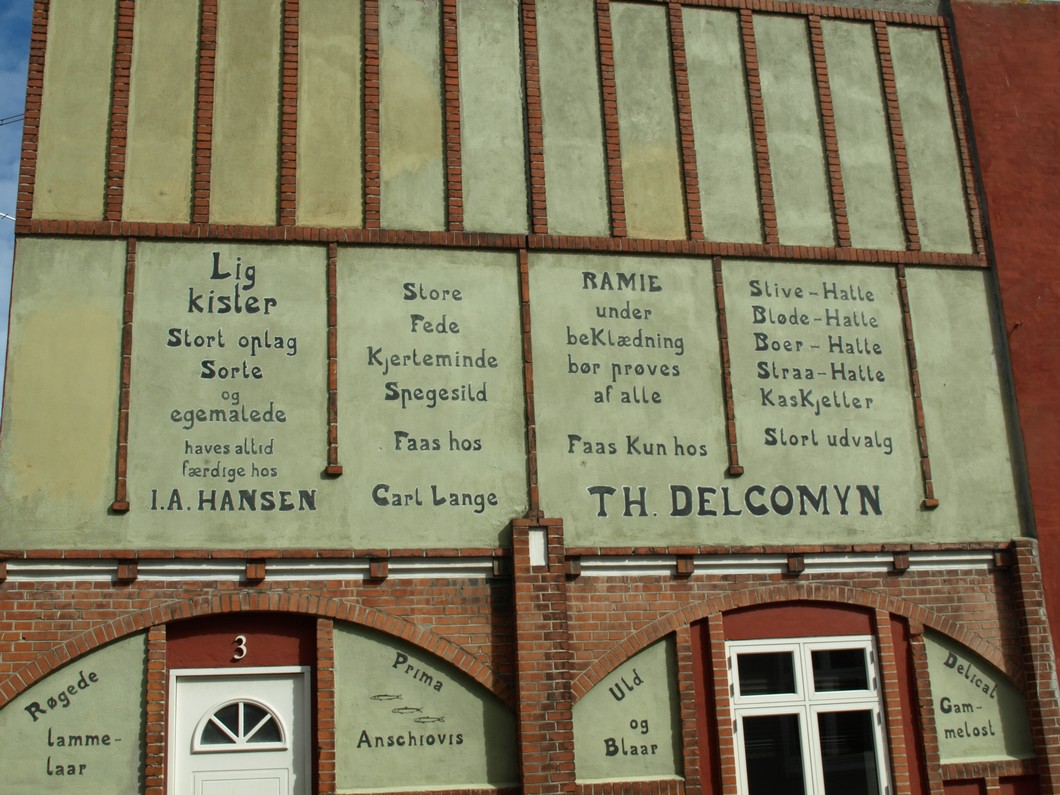 Lig
kister
Stort oplag
Sorte
og
egemalede
haves altid
færdige hos
I.A. HANSEN
Store
Fede
Kjerteminde
Spegesild
Faas hos
Carl Lange
RAMIE
under
beKlædning
bør prøves
af alle
Faas Kun hos
TH. DELCOMYN
Stive-Hatte
Bløde-Hatte
Boer-Hatte
Straa-Hatte
KasKjetter
Stort udvalg
3
Røgede
lamme-
laar
Prima
Anschiovis
Uld
og
Blaar
Delicat
Gam-
melost